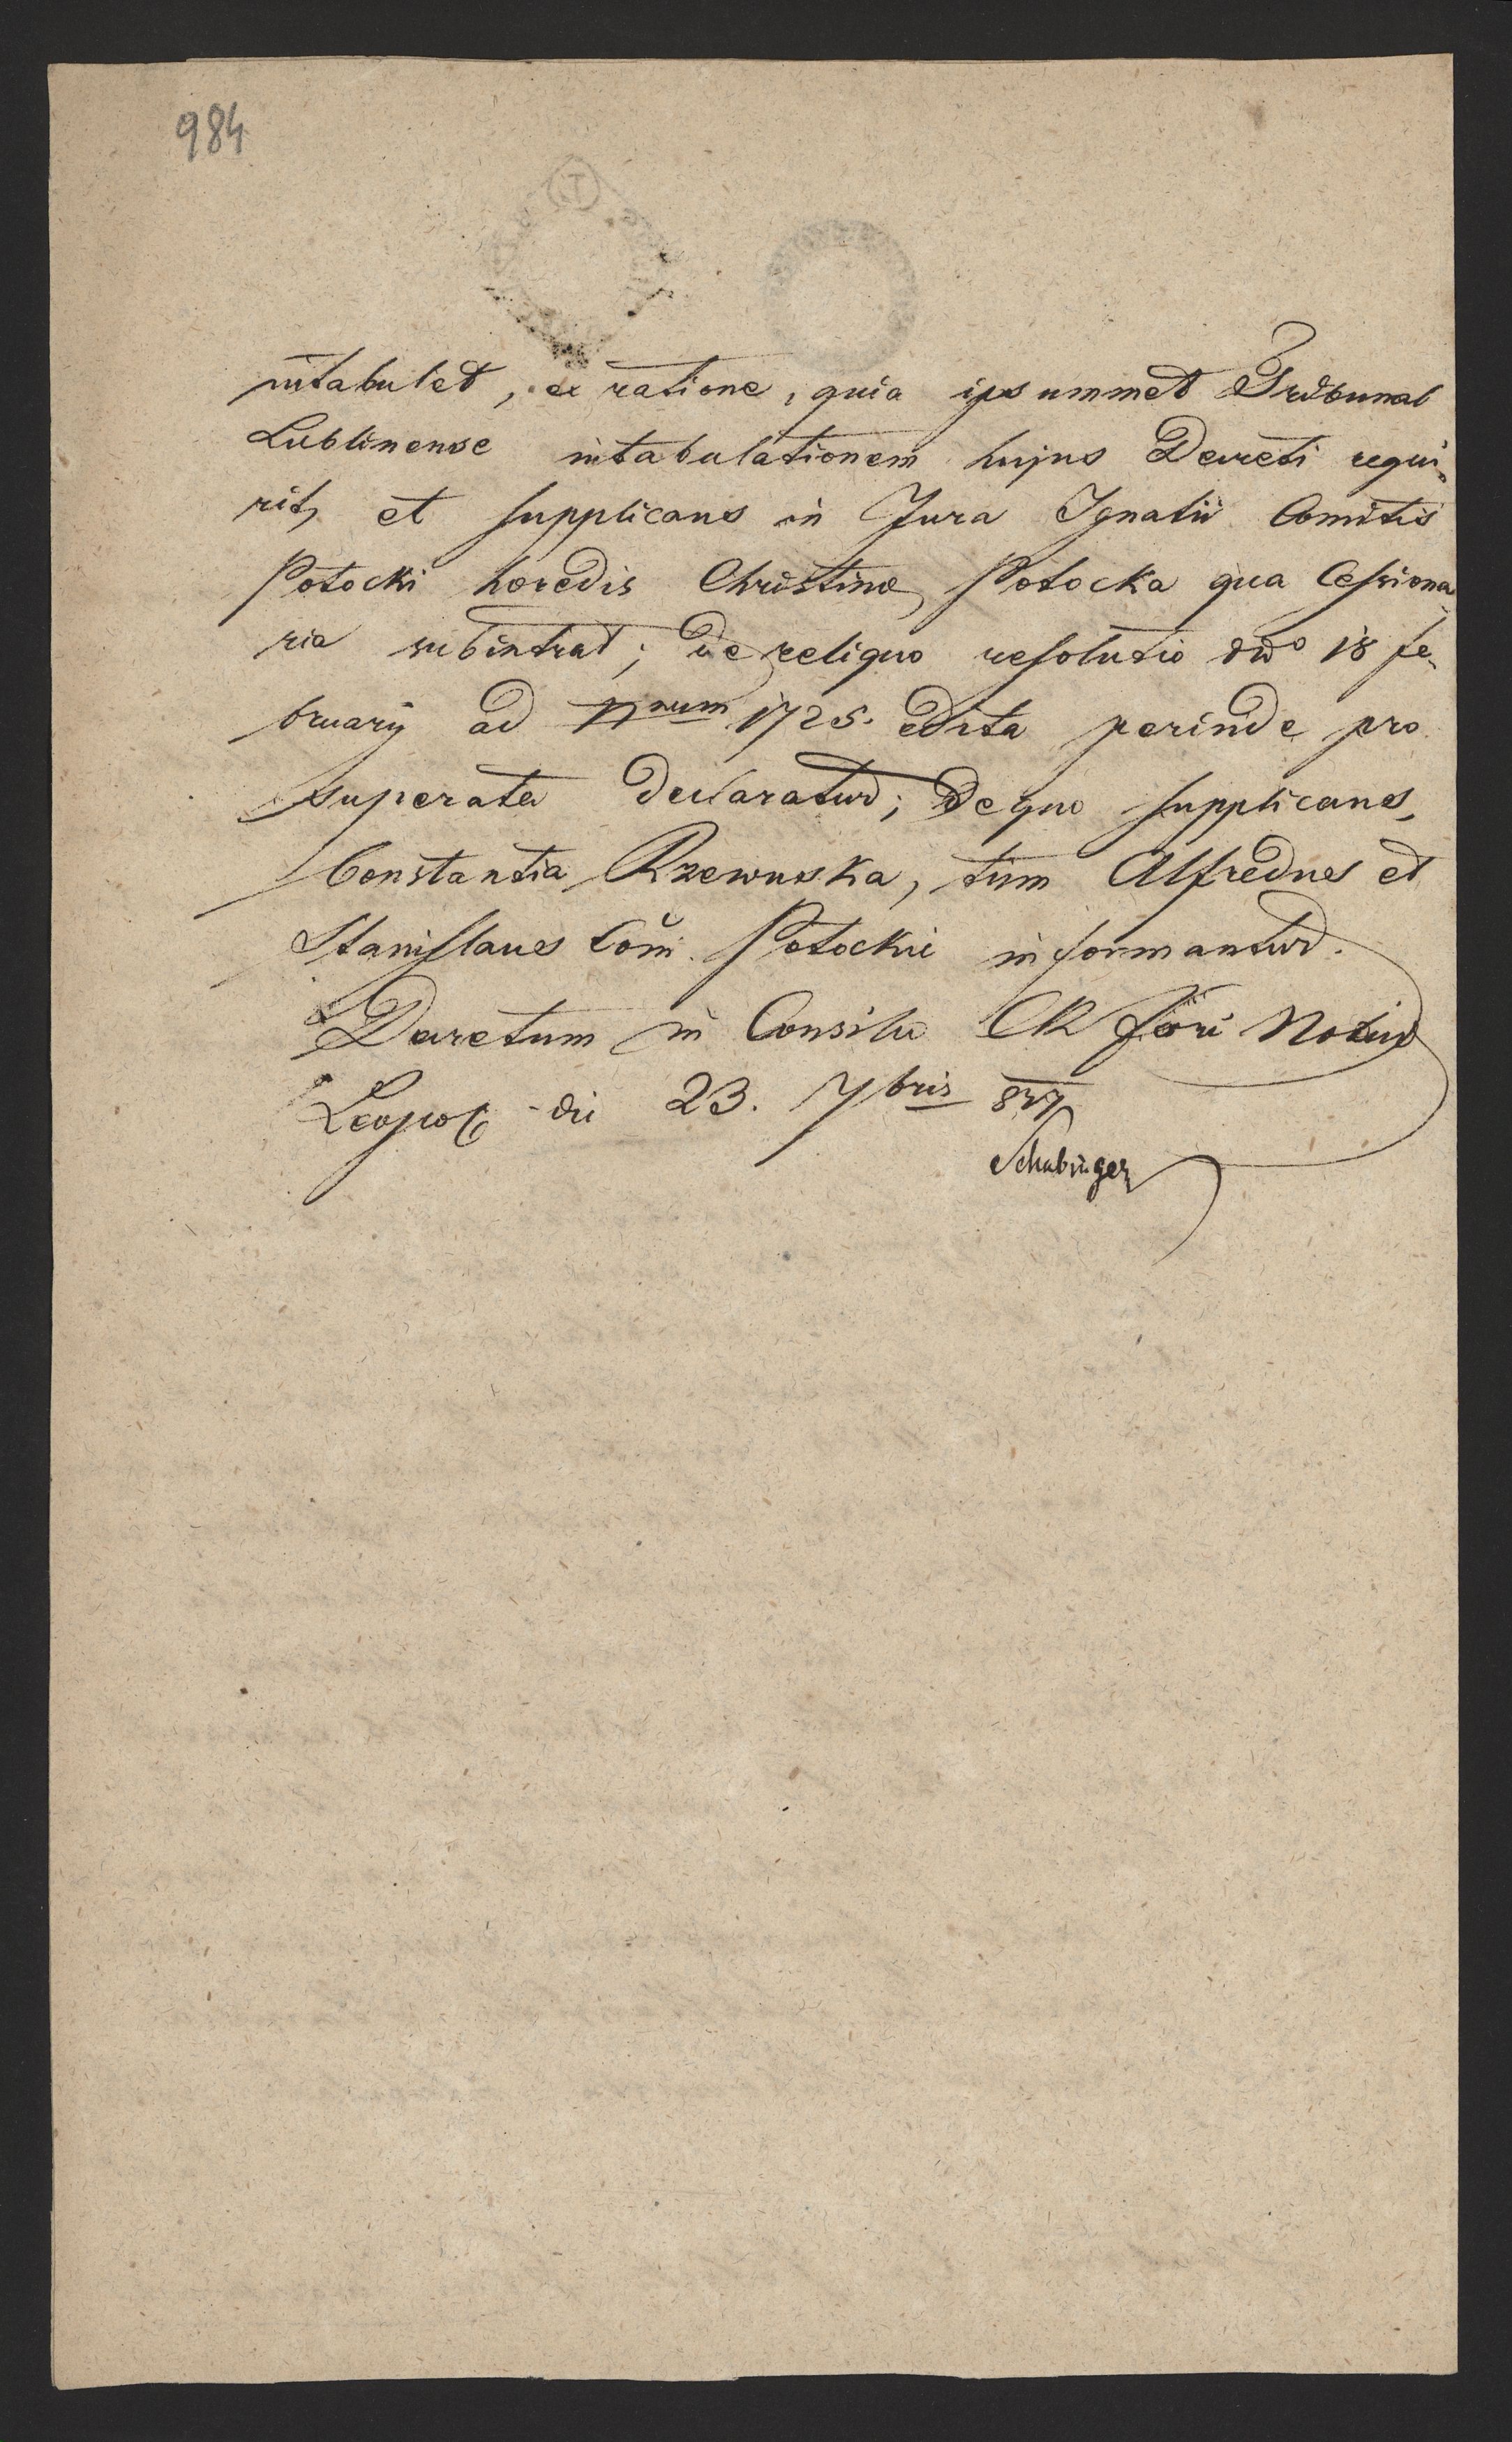 984
intabulet, ex ratione, quia ipsummet Tribunal
Lublinense intabulationem hujus Decreti requi-
rit, et supplicans in Jura Ignatii Comitis
Potocki haeredis Christinae Potocka qua Cessiona
ria subintrat; de reliquo resolutio dtto 18 fe-
bruarij ad Nnum 1725. edita perinde pro
superata declaratur; de quo supplicans,
Constantia Rzewuska, tum Alfredus et
Stanislaus Com. Potockie informantur.
Decretum in Consilio CR Fori Nobium
Leopol die 23. 7bris 827
Schabinger